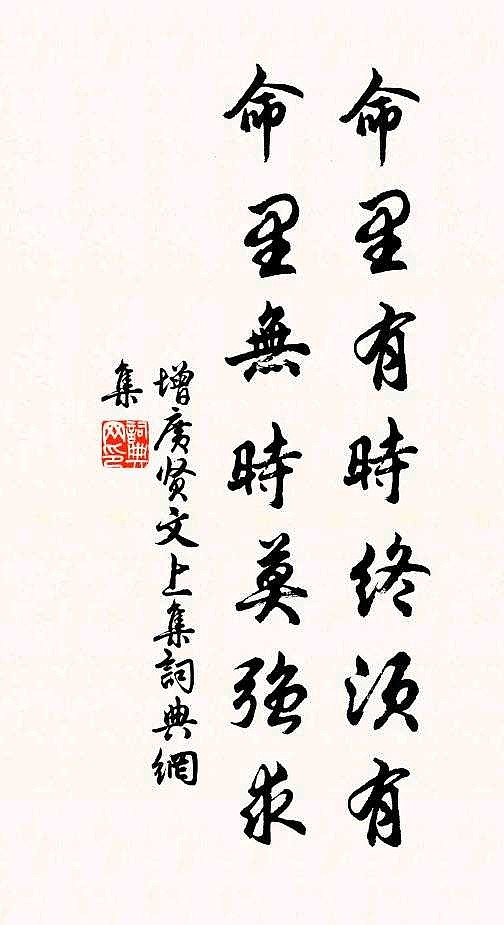 命里有時終須有
命里無時莫強求
增廣贤文上集詞典網
集
詞典
网印